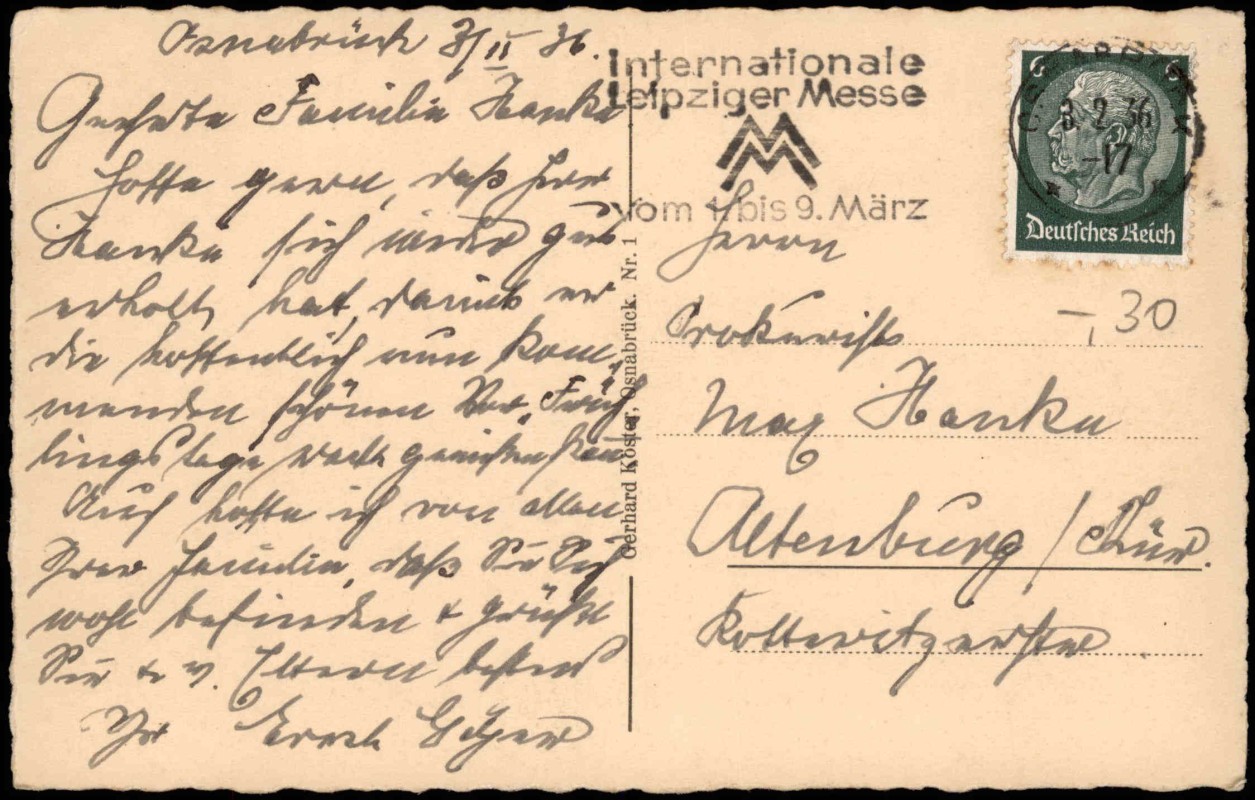 Osnabrück 3/II 36.
Geehrte Familie Hanke
Hoffe gern, daß Herr
Hanke sich wieder gut
erholt hat, damit er
die hoffentlich nun kom-
menden schönen Vor-Früh
lingstage recht genießen kann
Auch hoffe ich von allen
Ihrer Familie, daß Sie Sich
wohl befinden & grüße
Sie & v. Eltern bestens
Ihr Ernst
Internationale
Leipziger Messe
MM
vom 1. bis 9. März
3. 2. 36
-17
6 6
Deutsches Reich
-,30
Herrn
Prokurist
Max Hanke
Altenburg / Thür.
Gerhard Köster, Osnabrück. Nr. 1